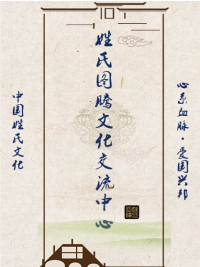 姓氏图腾文化交流中心
心系血脉·爱国兴邦
中国姓氏文化